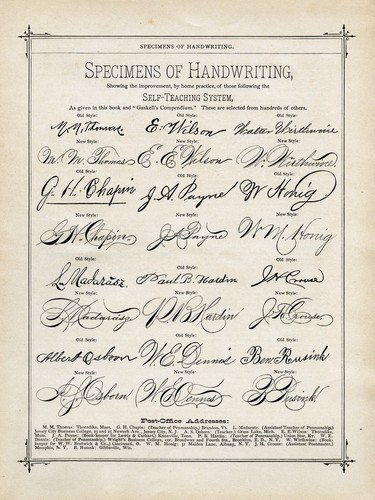 SPECIMENS OF HANDWRITING.
SPECIMENS OF HANDWRITING,
Showing the improvement, by home practice, of those following the
SELF-TEACHING SYSTEM,
As given in this book and "Gaskell's Compendium." These are selected from hundreds of others.
Old Style: Old Style: Old Style:
M. M. Thomas E. Wilson Walter Wirthwine
New Style: New Style: New Style:
M. M. Thomas E. E. Wilson W. Wirthwine
Old Style: Old Style: Old Style:
G. H. Chapin J. A. Payne W Honig
New Style: New Style: New Style:
G. H. Chapin J. A. Payne W. M. Honig
Old Style: Old Style: Old Style:
L. Madarász Paul B. Hardin J. H. Crouse
New Style: New Style: New Style:
L. Madarasz P. B. Hardin J. H. Crouse
Old Style: Old Style: Old Style:
Albert Osborn W. E. Dennis Ben Rusink
New Style: New Style: New Style:
A. S. Osborn W. E. Dennis B Rusink
Post-Office Addresses:
M. M. Thomas: Thorville, Mass. G. H. Chapin: (Teacher of Penmanship,) Brandon, Vt. L. Madarasz, (Assistant Teacher of Penmanship,)
Jersey City Business College, 23 and 25 Newark Ave., Jersey City, N. J. A. S. Osborn: (Teacher,) Grass Lake, Mich. E. E. Wilson: Thorville,
Mast. J. A. Payne: (Book-keeper for Lewis & Cuthert,) Knoxville, Tenn. P. B. Hardin: (Teacher of Penmanship,) Union Bay, Ky. W. E.
Dennis: (Teacher of Penmanship,) Wright's Business College, cor. Broadway and Fourth Sts., Brooklyn, E. D., N. Y. W. Wirthwine: (Book-
keeper for W. W. & Co.,) Cincinnati, O. W. M. Honig: 30 Maiden Lane, Albany, N. Y. J. H. Crouse: (Assistant Postmaster,)
Memphis, N. Y. B. Rusink: Gibbsville, Wis.